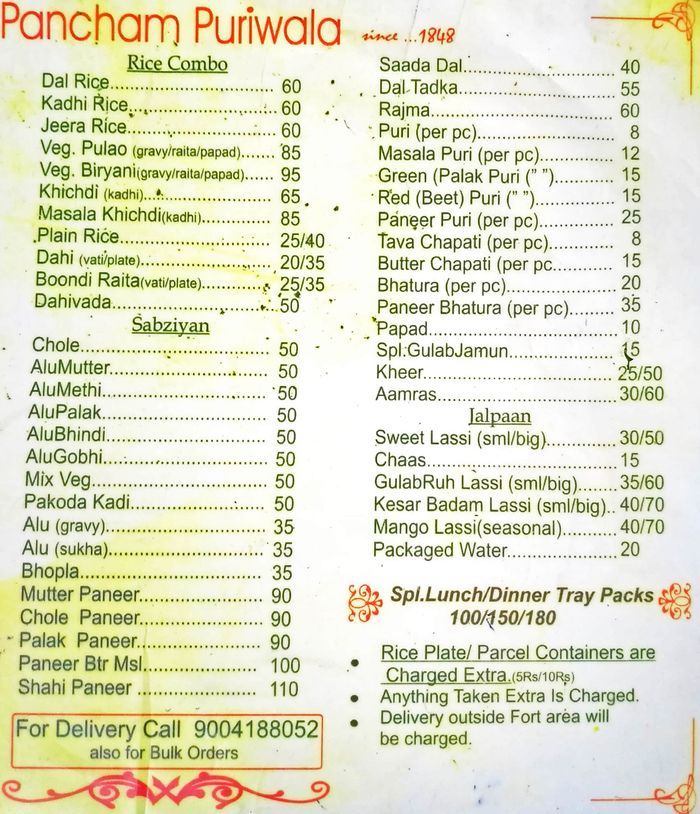 Pancham Puriwala since ...1848
Rice Combo
Dal Rice........................... 60
Kadhi Rice........................ 60
Jeera Rice........................ 60
Veg. Pulao (gravy/raita/papad)....... 85
Veg. Biryani(gravy/raita/papad)....... 95
Khichdi (kadhi)...................... 65
Masala Khichdi(kadhi)............. 85
Plain Rice......................... 25/40
Dahi (vati/plate)................... 20/35
Boondi Raita(vati/plate)............ 25/35
Dahivada.......................... 50
Sabziyan
Chole................................ 50
AluMutter........................... 50
AluMethi............................ 50
AluPalak............................ 50
AluBhindi........................... 50
AluGobhi............................ 50
Mix Veg.............................. 50
Pakoda Kadi........................ 50
Alu (gravy).......................... 35
Alu (sukha).......................... 35
Bhopla............................... 35
Mutter Paneer.................... 90
Chole Paneer..................... 90
Palak Paneer..................... 90
Paneer Btr Msl................... 100
Shahi Paneer .................... 110
For Delivery Call 9004188052
also for Bulk Orders
Saada Dal.......................... 40
Dal Tadka........................... 55
Rajma................................ 60
Puri (per pc)........................ 8
Masala Puri (per pc)............. 12
Green (Palak Puri (” ”)........... 15
Red (Beet) Puri (” ”).............. 15
Paneer Puri (per pc)............. 25
Tava Chapati (per pc)........... 8
Butter Chapati (per pc........... 15
Bhatura (per pc).................. 20
Paneer Bhatura (per pc)........ 35
Papad................................ 10
Spl.GulabJamun................... 15
Kheer................................ 25/50
Aamras.............................. 30/60
Jalpaan
Sweet Lassi (sml/big)........... 30/50
Chaas................................ 15
GulabRuh Lassi (sml/big)....... 35/60
Kesar Badam Lassi (sml/big).. 40/70
Mango Lassi(seasonal)......... 40/70
Packaged Water.................. 20
Spl.Lunch/Dinner Tray Packs
100/150/180
• Rice Plate/ Parcel Containers are
Charged Extra.(5Rs/10Rs)
• Anything Taken Extra Is Charged.
• Delivery outside Fort area will
be charged.